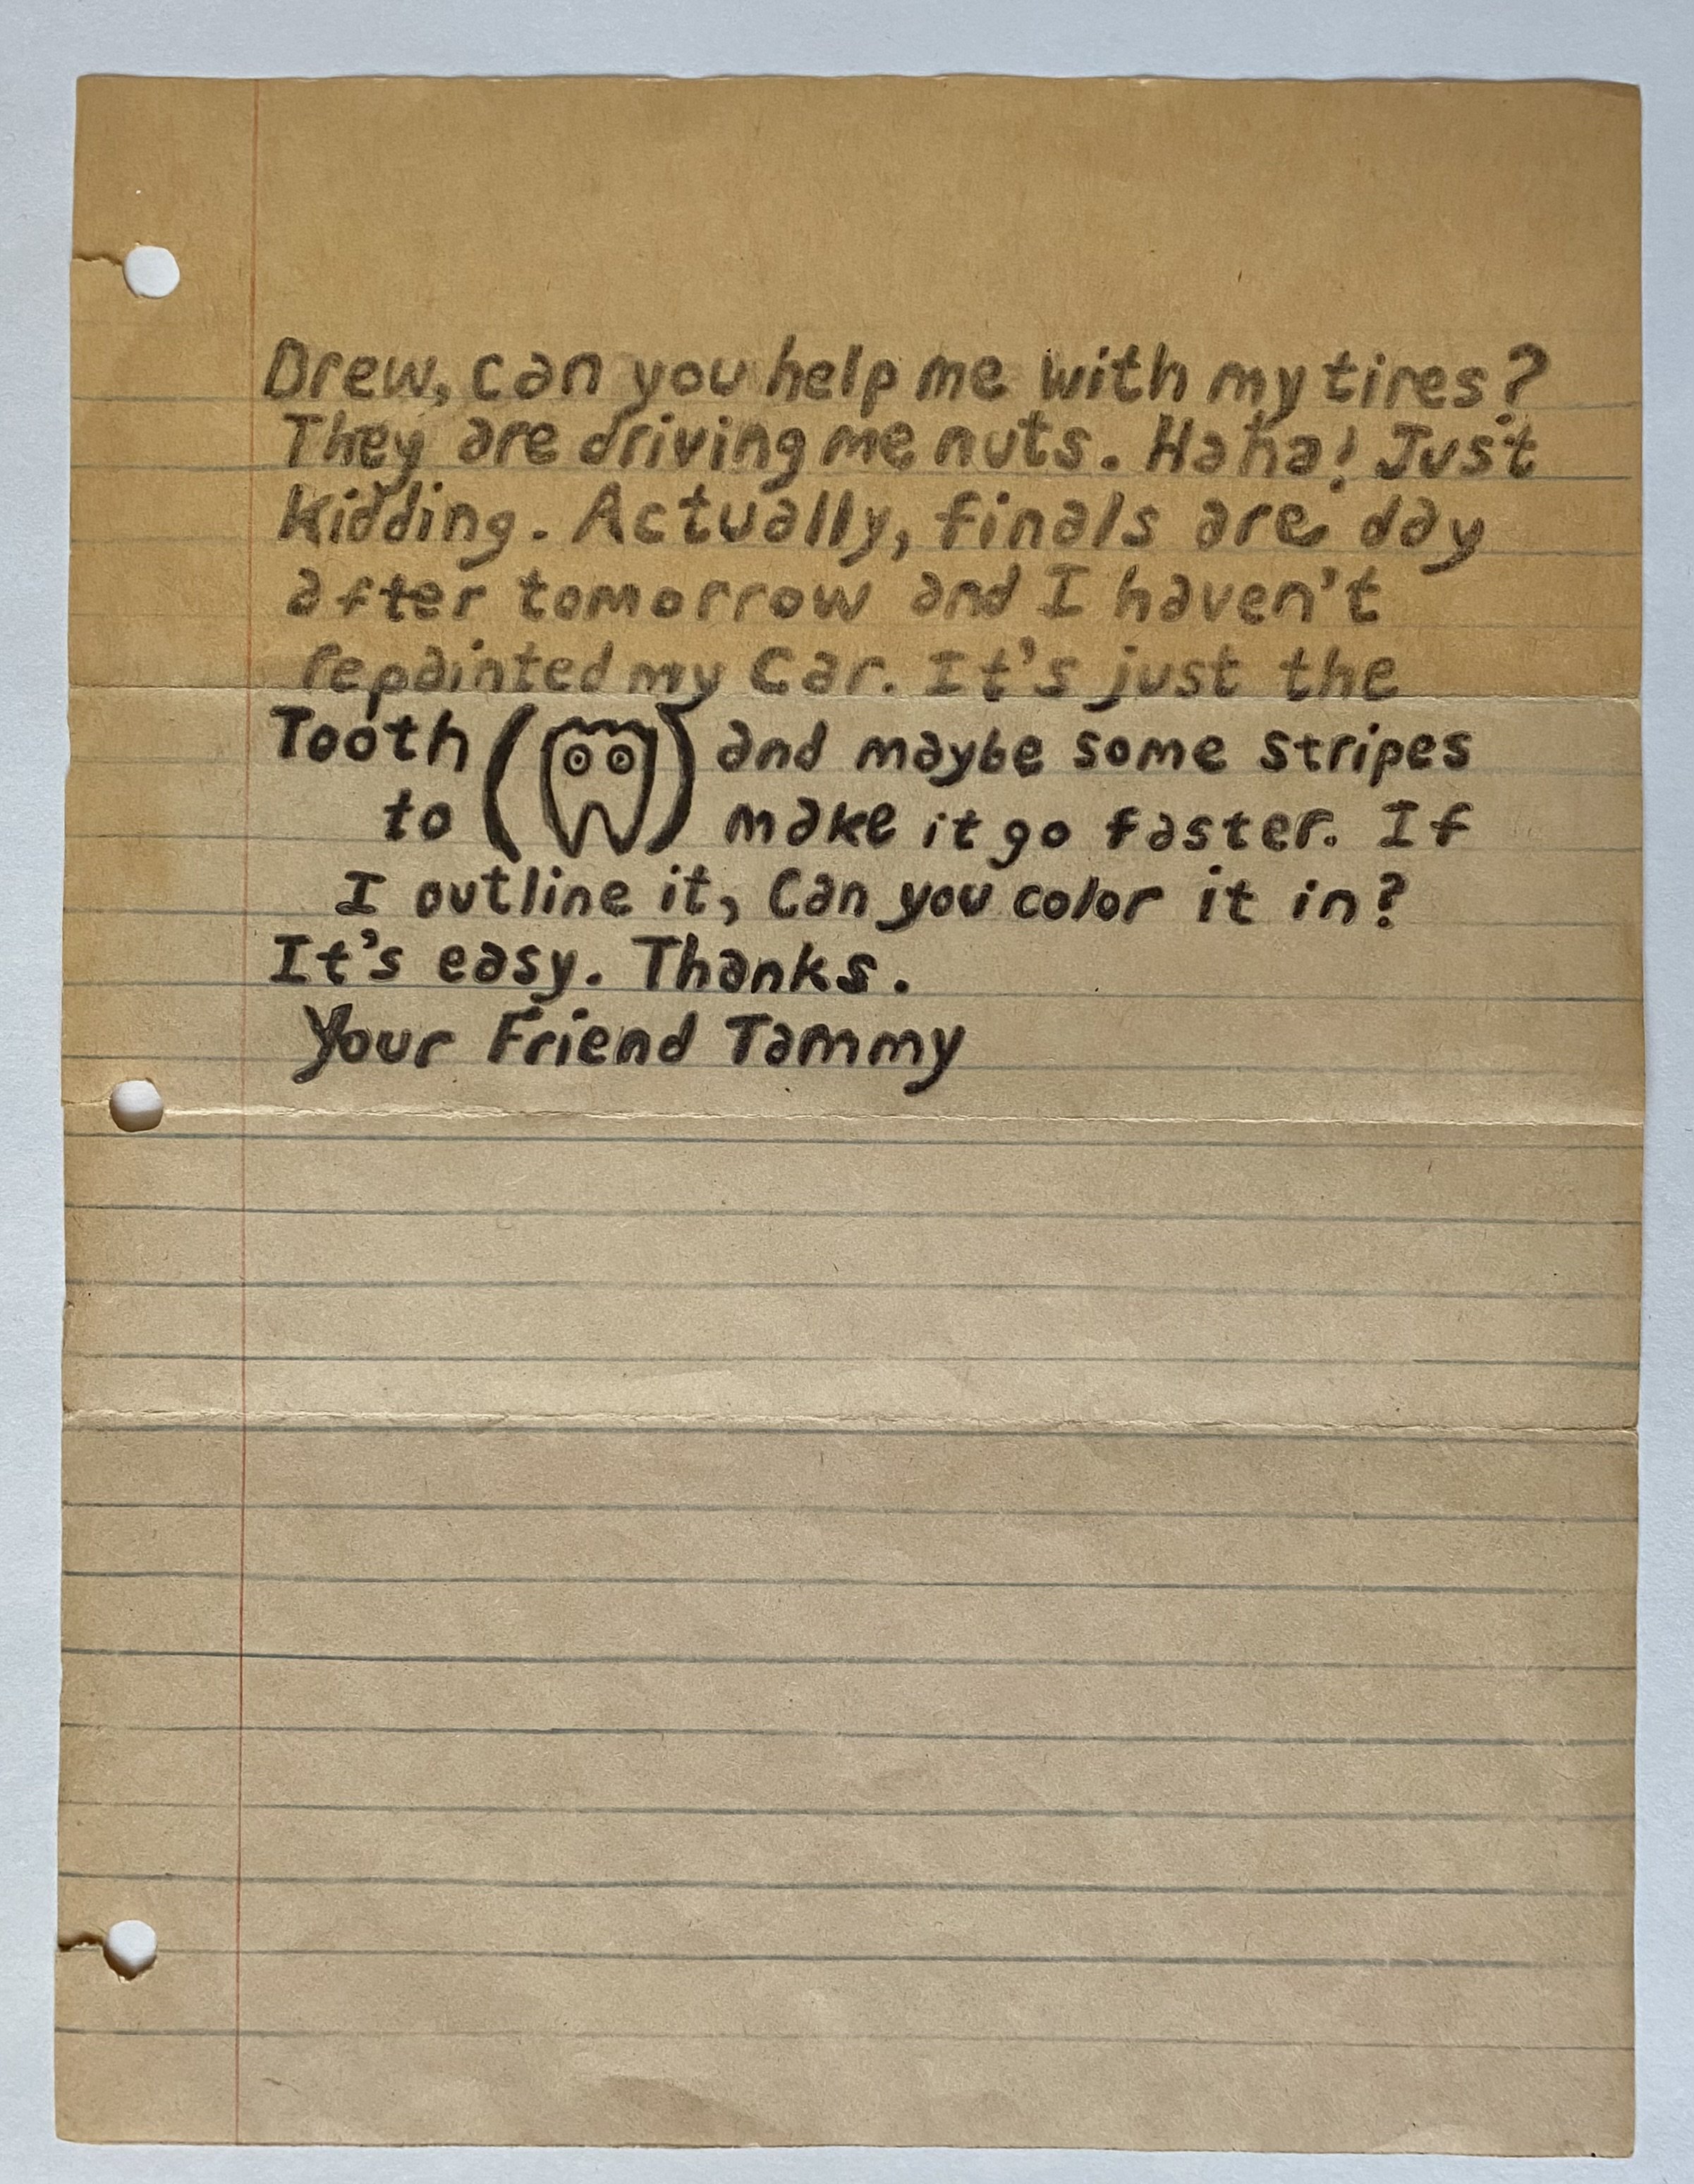 Drew, can you help me with my tires?
They are driving me nuts. Haha! Just
Kidding. Actually, finals are day
after tomorrow and I haven't
repainted my Car. It's just the
Tooth ( ) and maybe some stripes
to make it go faster. If
I outline it, Can you color it in?
It's easy. Thanks.
Your Friend Tammy